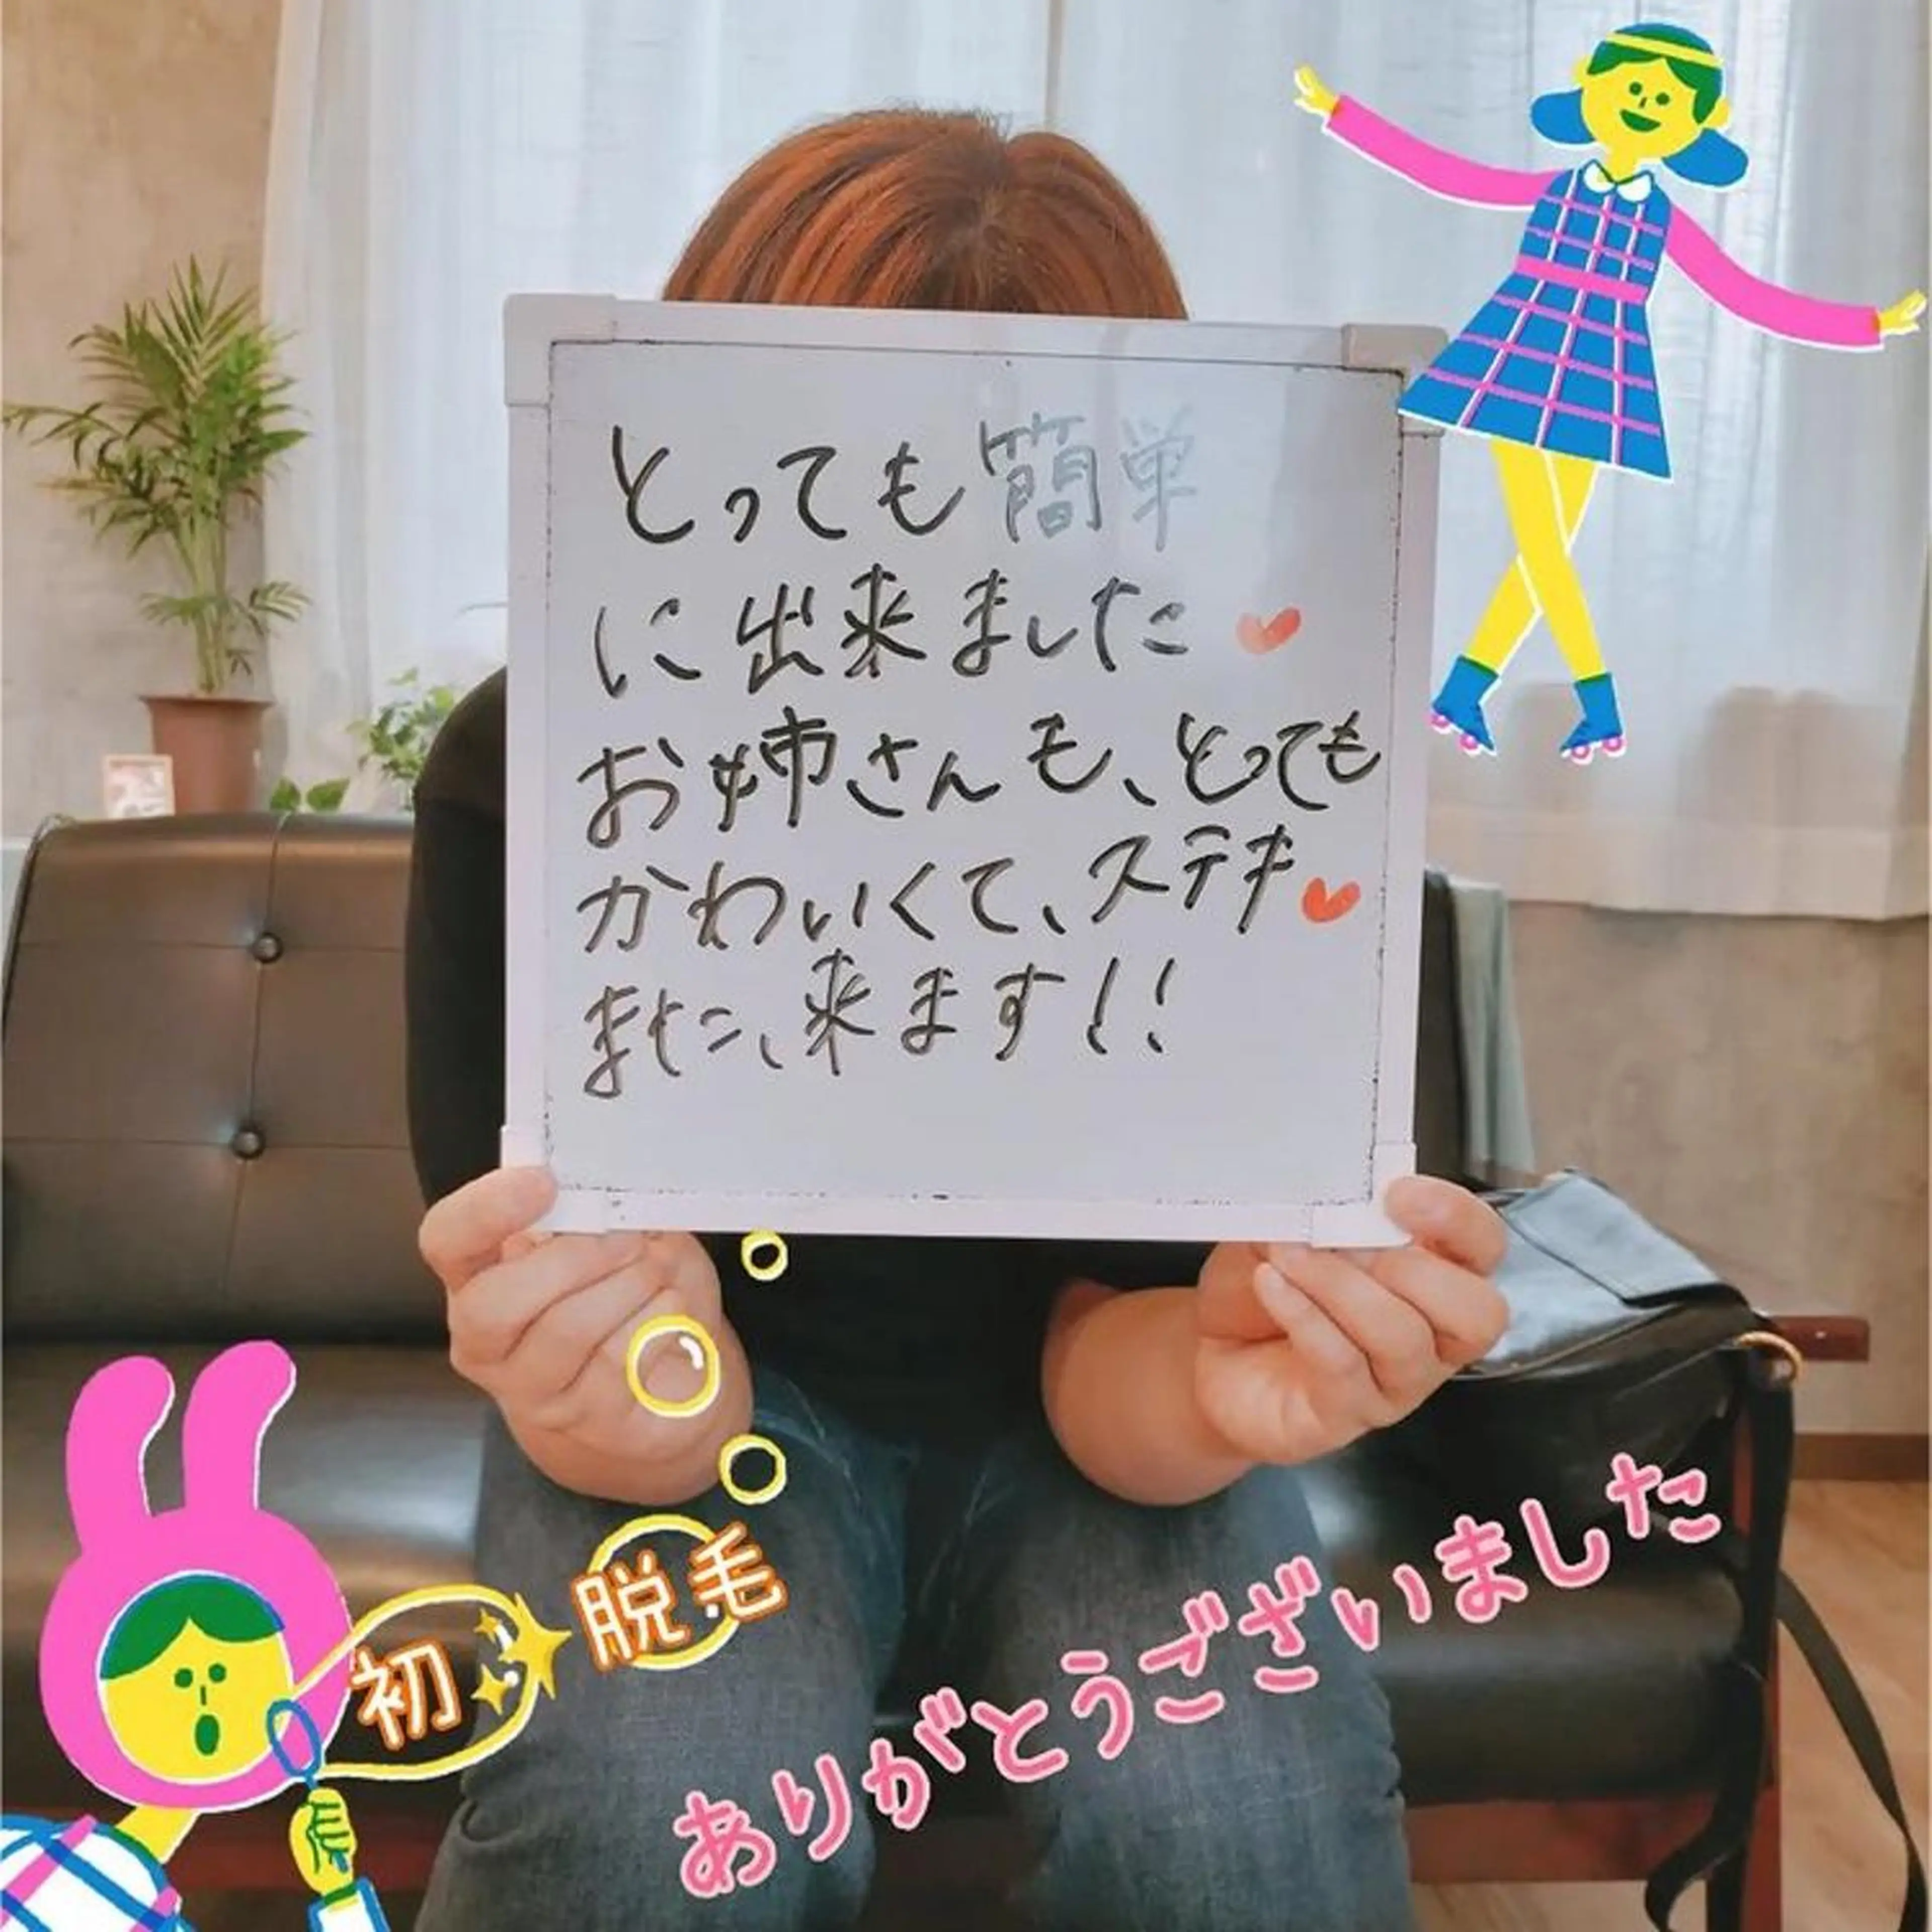 とっても簡単
に出来ました♥
お姉さんも、とっても
かわいくて、ステキ♥
また、来ます!!
初脱毛
ありがとうございました